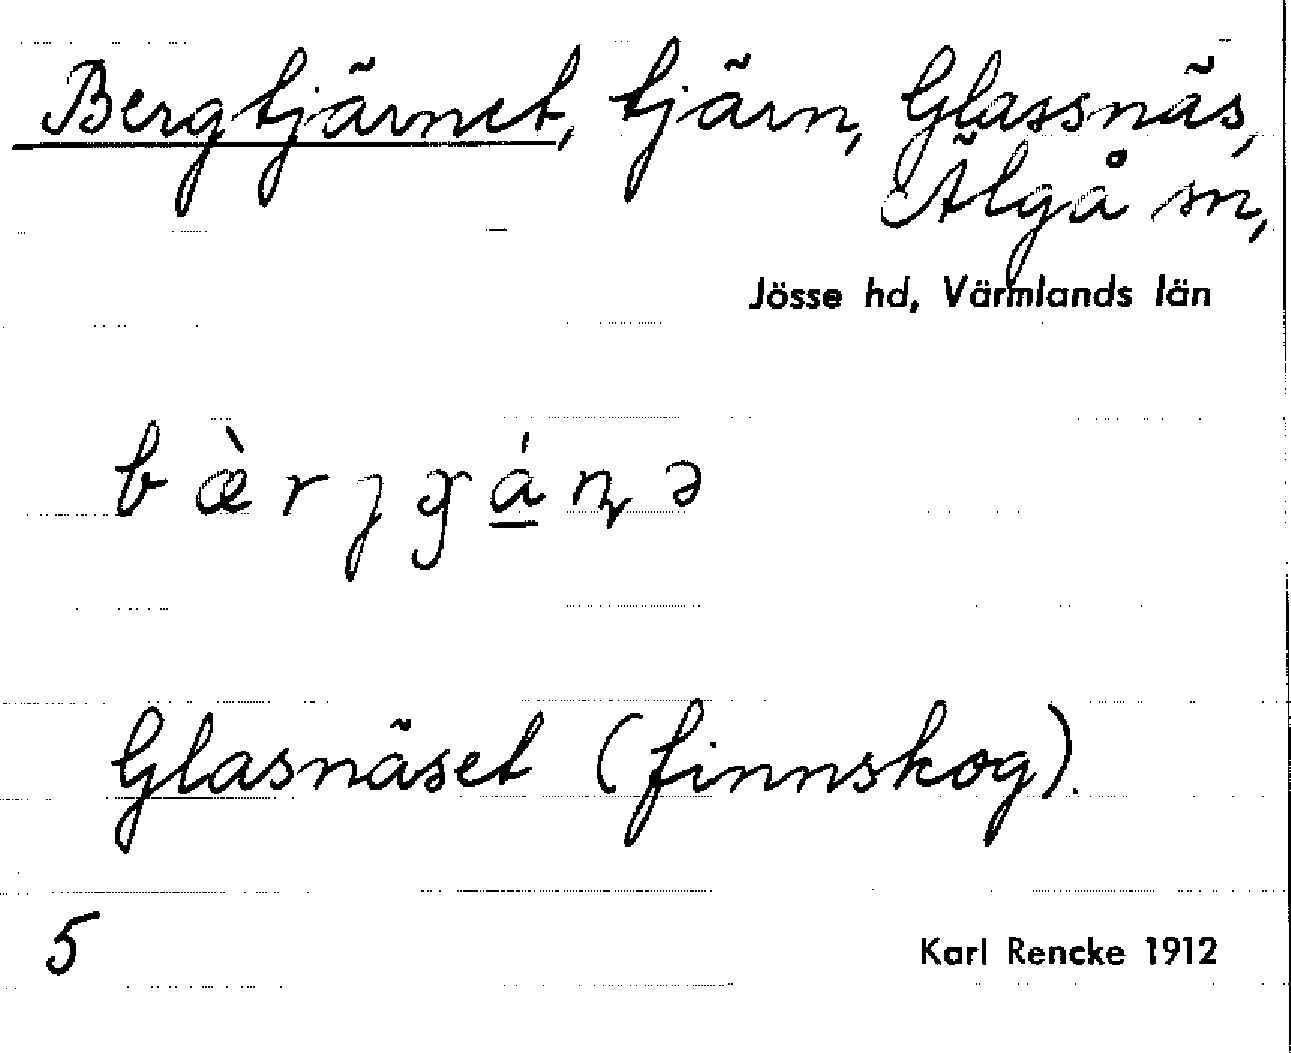 Bergtjärnet, tjärn, Glassnäs,
Älgå sn,
Jösse hd, Värmlands län
Glasnäset (finnskog).
5
Karl Rencke 1912